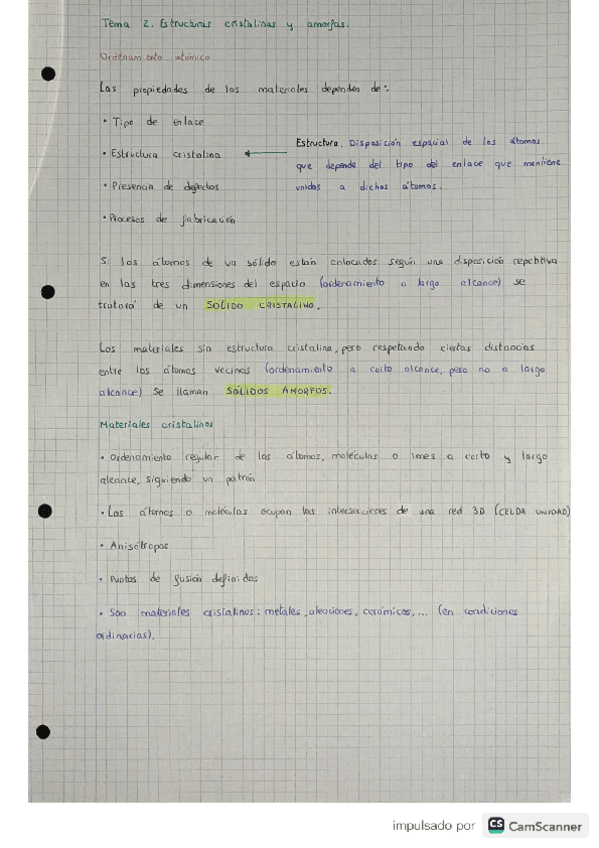 Tema 2. Estructuras cristalinas y amorfas.
Ordenamiento atómico
Las propiedades de los materiales dependen de:
• Tipo de enlace
• Estructura cristalina
Estructura. Disposición espacial de los átomos
que depende del tipo del enlace que mantiene
unidos a dichos átomos.
• Presencia de defectos
• Procesos de fabricación
Si los átomos de un sólido están colocados según una disposición repetitiva
en las tres dimensiones del espacio (ordenamiento a largo alcance) se
tratará de un SÓLIDO CRISTALINO.
Los materiales sin estructura cristalina, pero respetando ciertas distancias
entre los átomos vecinos (ordenamiento a corto alcance, pero no a largo
alcance) se llaman SÓLIDOS AMORFOS.
Materiales cristalinos
• Ordenamiento regular de los átomos, moléculas o iones a corto y largo
alcance, siguiendo un patrón
• Los átomos o moléculas ocupan las intersecciones de una red 3D (CELDA UNIDAD)
• Anisótropos
• Puntos de fusión definidos
• Son materiales cristalinos: metales, aleaciones, cerámicos, ... (en condiciones
ordinarias).
impulsado por CS CamScanner